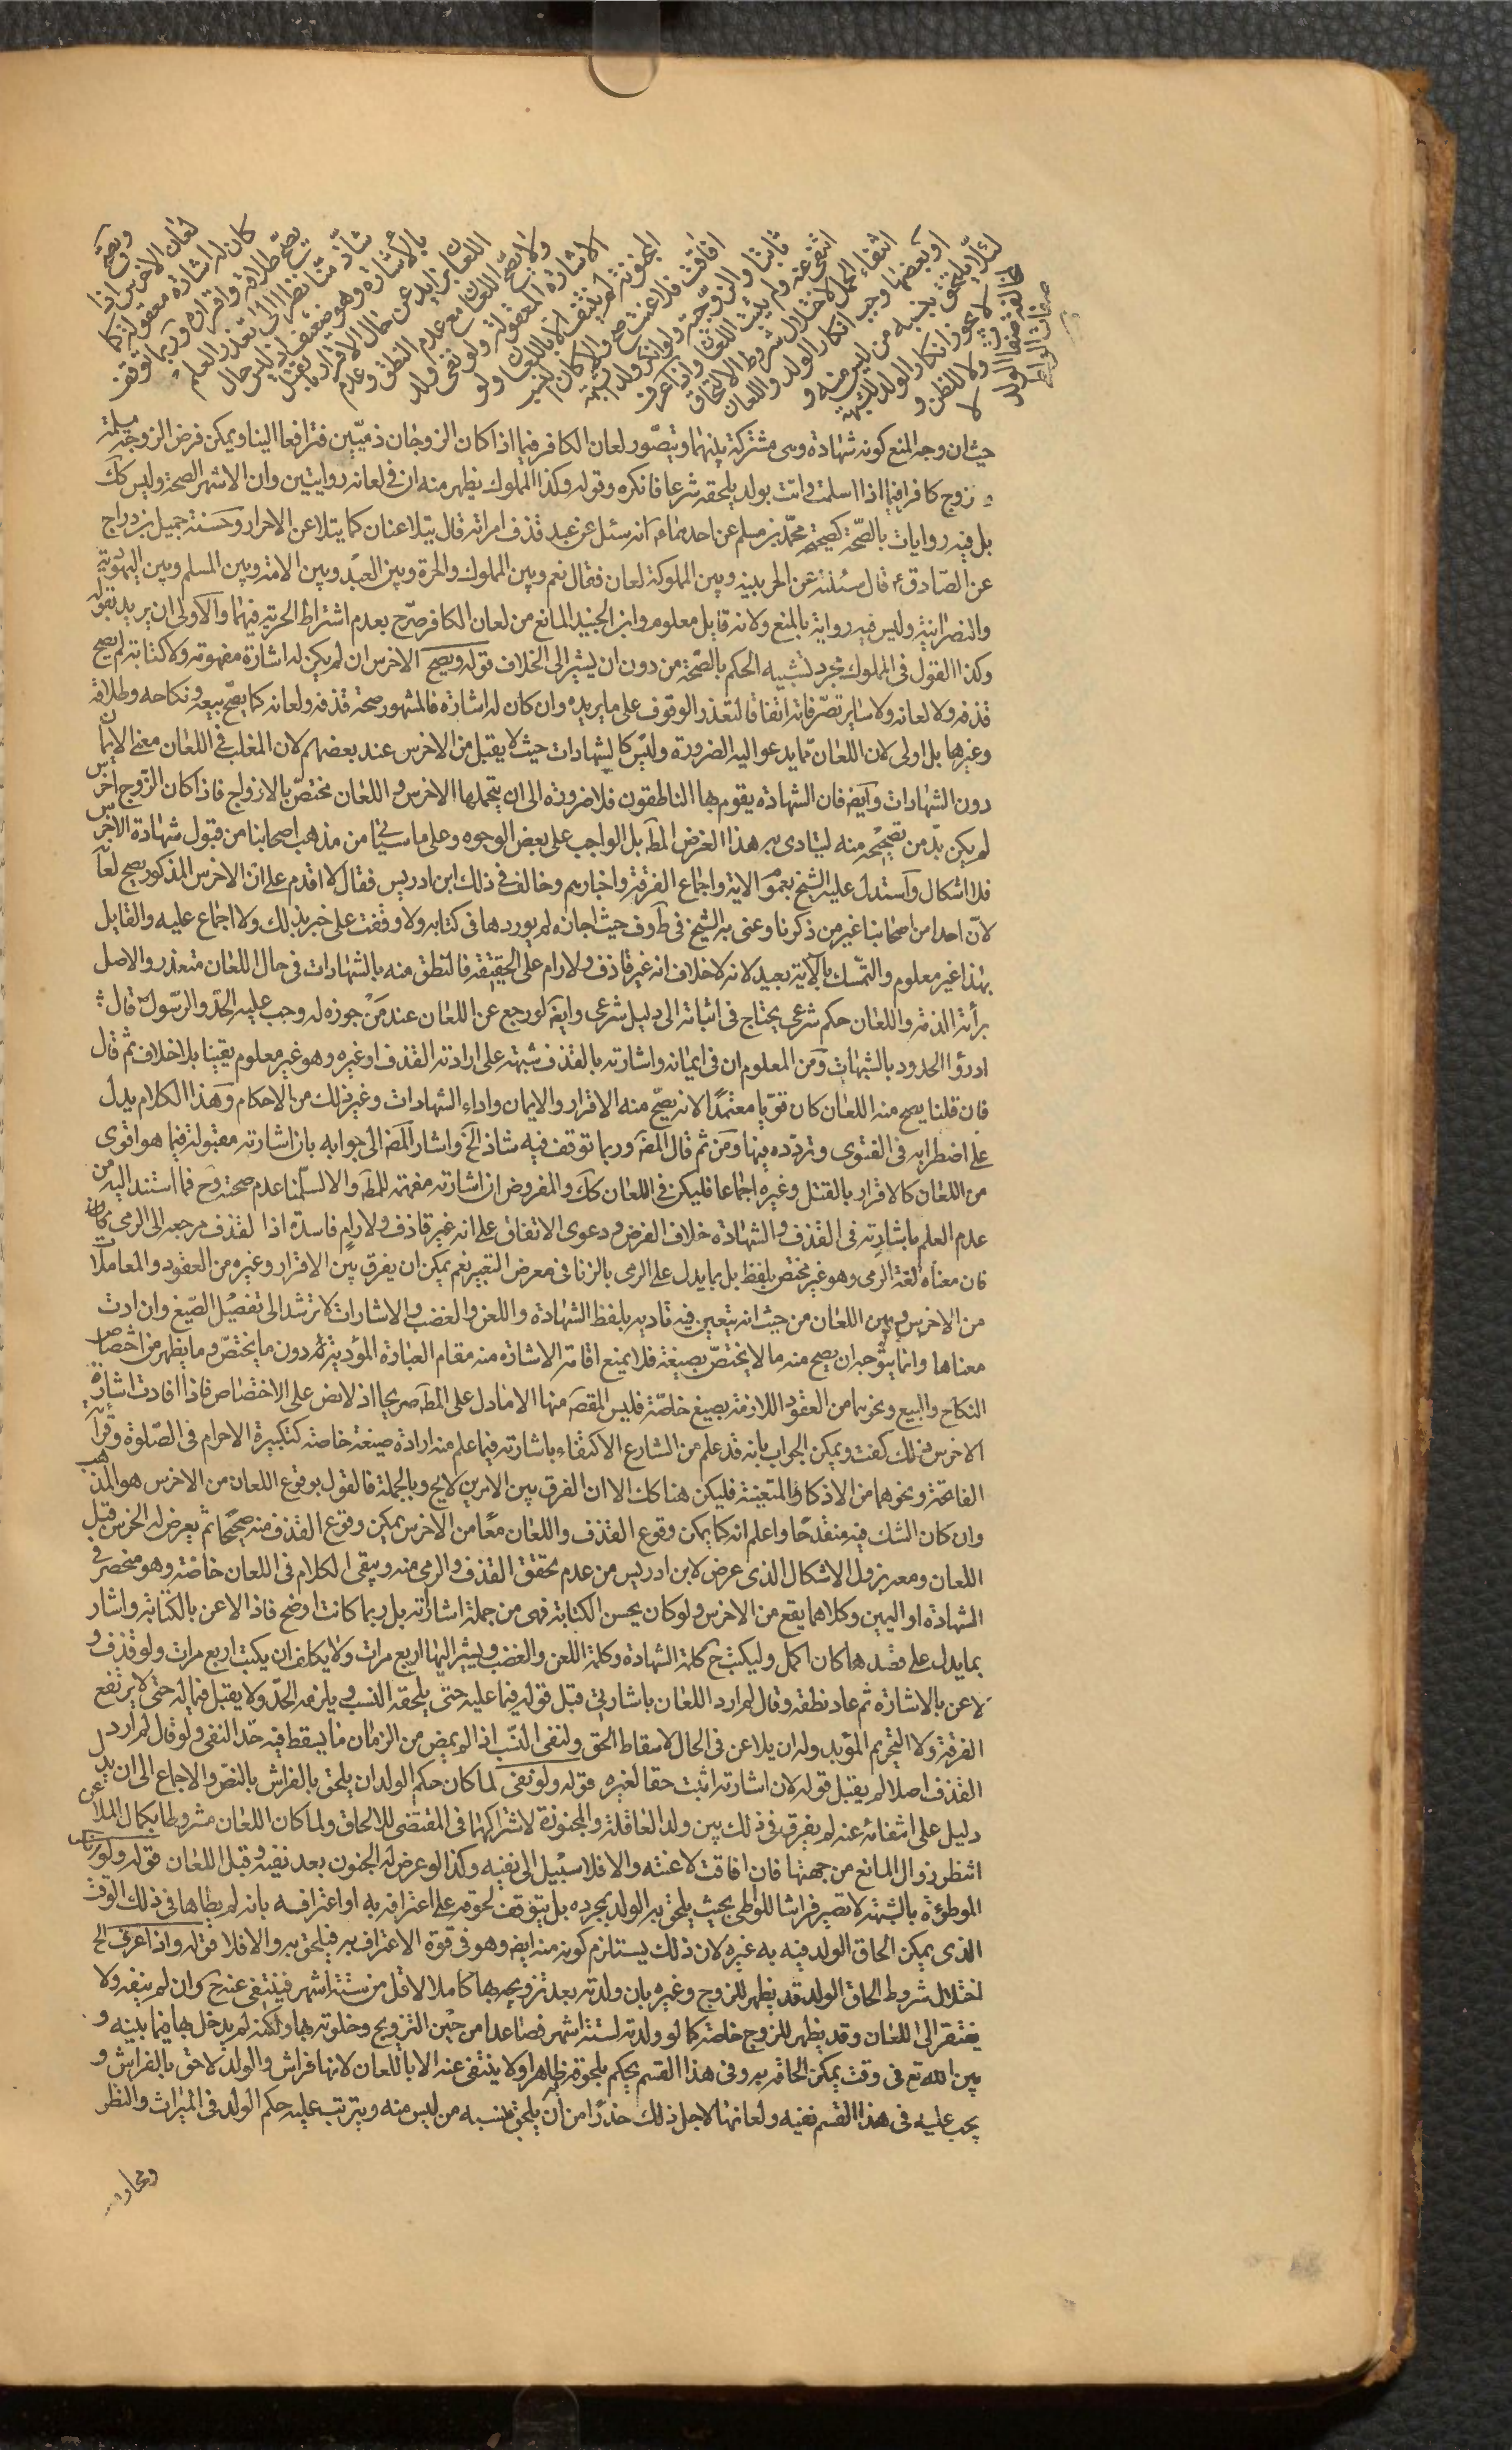 ويصح لعان الاخرس اذا
كان له اشارة معقولة كما
يصح طلاقه واقراره وربما توقف
شاذ منا نظرا الى تعذر العلم
بالاشارة وهو ضعيف اذ ليس حال
اللعان بزايد عن حال الاقرار بالقتل
ولا يصح اللعان مع عدم النطق وعدم
الاشارة المعقولة ولو نفى ولد
المجنونة لم ينتف الا باللعان ولو
افاقت فلاعنت صح والا كان النسب
ثابتا والزوجية ولو انكر ولد الشبهة
انتفى عنه ولم يثبت اللعان واذا عرف
انتفاء الحمل لاختلال شروط الالتحاق
او بعضها وجب انكار الولد واللعان
لئلا يلتحق بنسبه من ليس منه و
لا يجوز انكار الولد للشبهة
ولا للظن و لا
لمخالفة صفات الولد
صفات الواطئ
حيث ان وجه المنع كونه شهادة وهى مشتركة بينهما ويتصور لعان الكافر فيما اذا كان الزوجان ذميين فترافعا الينا ويمكن فرض الزوجة مسلمة
و زوج كافر فيما اذا اسلمت واتت بولد يلحقه شرعا فانكره وقوله وكذا المملوك يظهر منه ان فى لعانه روايتين وان الاشهر الصحة وليس كك
بل فيه روايات بالصحة كصحيحة محمد بن مسلم عن احدهما ع انه سئل عن عبد قذف امراته قال يتلاعنان كما يتلاعن الاحرار وحسنة جميل بن دراج
عن الصادق ع قال سئلته عن الحر بينه وبين المملوكة لعان فقال نعم وبين المملوك والحرة وبين العبد وبين الامة وبين المسلم وبين اليهودية
والنصرانية وليس فيه رواية بالمنع ولا نه قايل معلوم وابن الجنيد المانع من لعان الكافر صرح بعدم اشتراط الحرية فيهما والاولى ان يريد بقوله
وكذا القول فى المملوك مجرد تشبيه الحكم بالصحة من دون ان يشير الى الخلاف قوله ويصح الاخرس ان لم يكن له اشارة مفهومة ولا كتابة لم يصح
قذفه ولا لعانه ولا ساير تصرفاته اتفاقا لتعذر الوقوف على ما يريده وان كان له اشارة فالمشهور صحة قذفه ولعانه كما يصح بيعه ونكاحه وطلاقه
وغيرهما بل اولى لان اللعان مما يدعو اليه الضرورة وليس كالشهادات حيث لا يقبل من الاخرس عند بعضهم لان المغلب فى اللعان معنى الايمان
دون الشهادات وايضا فان الشهادة يقوم بها الناطقون فلا ضرورة الى ان يتحملها الاخرس و اللعان مختص بالازواج فاذا كان الزوج اخرس
لم يكن بد من تصحيحه منه ليتادى به هذا الغرض المط بل الواجب على بعض الوجوه وعلى ما سياتى من مذهب اصحابنا من قبول شهادة الاخرس
فلا اشكال واستدل عليه الشيخ بعموم الاية واجماع الفرقة واخبارهم وخالف فى ذلك ابن ادريس فقال لا اقدم على ان الاخرس المذكور يصح لعانه
لان احدا من اصحابنا غير من ذكرنا وعنى به الشيخ فى ط وف حيث اجازه لم يوردها فى كتابه ولا وقفت على خبر بذلك ولا اجماع عليه والقايل
بهذا غير معلوم والتمسك بالاية بعيد لانه لا خلاف انه غير قاذف ولا رام على الحقيقة فالنطق منه بالشهادات فى حال اللعان متعذر والاصل
براة الذمة واللعان حكم شرعى يحتاج فى اثباته الى دليل شرعى وايضا لو رجع عن اللعان عند من جوزه له وجب عليه الحد والرسول ص قال
ادرؤا الحدود بالشبهات ومن المعلوم ان فى ايمانه واشارته بالقذف شبهة على ارادته القذف او غيره وهو غير معلوم يقينا بلا خلاف ثم قال
فان قلنا يصح منه اللعان كان قويا معتمدا لانه يصح منه الاقرار والايمان واداء الشهادات وغير ذلك من الاحكام وهذا الكلام يدل
على اضطرابه فى الفتوى وتردده فيها ومن ثم قال المص وربما توقف فيه شاذ الخ واشار المص الى جوابه بان اشارته مقبولة فيما هو اقوى
من اللعان كالاقرار بالقتل وغيره اجماعا فليكن فى اللعان كك والمفروض ان اشارته مفهمة للمط والا لسلمنا عدم صحته وح فما استند اليه من
عدم العلم باشارته فى القذف و الشهادة خلاف الفرض و دعوى الاتفاق على انه غير قاذف ولا رام فاسدة اذا لقذف مرجعه الى الرمى
فان معناه لغة الرمى وهو غير مختص بلفظ بل بما يدل على الرمى بالزنا فى معرض التعيير نعم يمكن ان يفرق بين الاقرار وغيره من العقود والمعاملات
من الاخرس و بين اللعان من حيث انه يتعين فيه تاديه بلفظ الشهادة واللعن والغضب و الاشارات لا ترشد الى تفصيل الصيغ وان ادت
معناها وانما يتوجه ان يصح منه ما لا يختص بصيغة فلا يمنع اقامة الاشارة منه مقام العبارة المؤدية له دون ما يختص و ما يظهر من اختصاص
النكاح والبيع ونحوهما من العقود اللازمة بصيغ خاصة فليس المقصد منها الا ما دل على المط صريحا اذ لا نص على الاختصاص فاذا افادت اشارة
الاخرس ذلك كفت ويمكن الجواب بانه قد علم من الشارع الاكتفاء باشارته فيما علم منه ارادة صيغة خاصة كتكبيرة الاحرام فى الصلوة وقرائة
الفاتحة ونحوهما من الاذكار المتعينة فليكن هنا كك الا ان الفرق بين الامرين لايح وبالجملة فالقول بوقوع اللعان من الاخرس هو المذهب
وان كان الشك فيه منقدحا واعلم انه كما يمكن وقوع القذف واللعان معا من الاخرس يمكن وقوع القذف منه صحيحا ثم يعرض له الخرس قبل
اللعان ومعه يزول الاشكال الذى عرض لابن ادريس من عدم تحقق القذف والرمى منه ويبقى الكلام فى اللعان خاصة وهو منحصر فى
الشهادة او اليمين وكلاهما يقع من الاخرس ولو كان يحسن الكتابة فهى من جملة اشاراته بل ربما كانت اوضح فاذا لاعن بالكتابة واشار
بما يدل على قصدها كان اكمل وليكتب ح كلمة الشهادة وكلمة اللعن والغضب ويشير اليها اربع مرات ولا يكلف ان يكتب اربع مرات ولو قذف و
لاعن بالاشارة ثم عاد نطقه وقال لم ارد اللعان باشارتى قبل قوله فيما عليه حتى يلحقه النسب و يلزمه الحد ولا يقبل فيما له حتى لا يرتفع
الفرقة ولا التحريم المؤبد وله ان يلاعن فى الحال لاسقاط الحق ولنفى النسب اذا لم يمض من الزمان ما يسقط فيه حد النفى ولو قال لم ارد
القذف اصلا لم يقبل قوله لان اشارته اثبت حقا لغيره قوله ولو نفى لما كان حكم الولد ان يلحق بالفراش بالنص والاجماع الى ان يدل
دليل على انتفائه عنه لم يفرق فى ذلك بين ولد العاقلة والمجنونة لاشراكهما فى المقتضى للالحاق ولما كان اللعان مشروطا بكمال الملاعن
انتظر زوال المانع من جهتها فان افاقت لاعنته والا فلا سبيل الى نفيه وكذا لو عرض له الجنون بعد نفيه وقبل اللعان قوله ولو
الموطوئة بالشبهة لا تصير فراشا للواطى بحيث يلحق به الولد بمجرده بل يتوقف لحوقه على اعترافه به او اعترافه بانه لم يطاها فى ذلك الوقت
الذى يمكن الحاق الولد فيه به غيره لان ذلك يستلزم كونه منه ايضا وهو فى قوة الاعتراف به فيلحق به والا فلا قوله واذا عرف الخ
اختلال شروط الحاق الولد قد يظهر للزوج وغيره بان ولدته بعد تزويجه بها كاملا لاقل من ستة اشهر فينتفى عنه ح وان لم ينفه ولا
يفتقر الى اللعان وقد يظهر للزوج خاصة كما لو ولدته لستة اشهر فصاعدا من حين التزويج وخلوته بها ولكنه لم يدخل بها فيما بينه و
بين الله تع فى وقت يمكن الحاقه به وفى هذا القسم يحكم بلحوقه ظاهرا ولا ينتفى عنه الا باللعان لانها فراش والولد لاحق بالفراش و
يجب عليه فى هذا القسم نفيه ولعانها لاجل ذلك حذرا من ان يلحق بنسبه من ليس منه ويترتب عليه حكم الولد فى الميراث والنظر